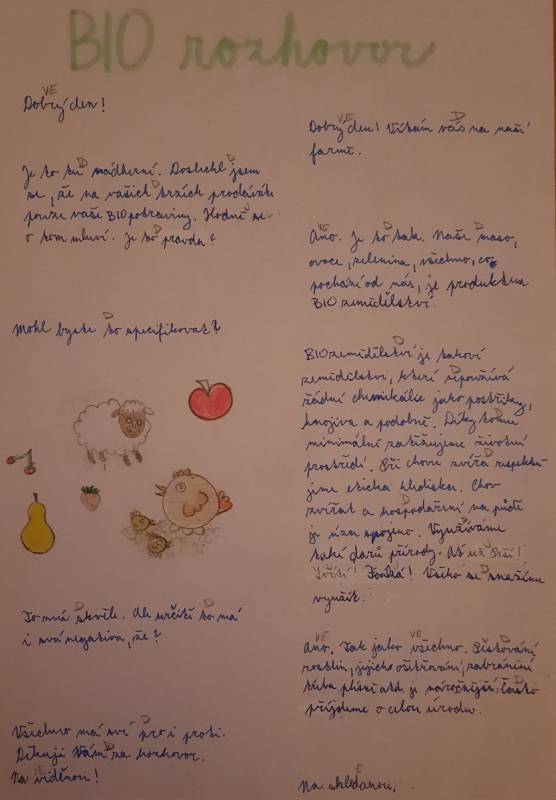 BIO rozhovor
Dobrý den!
Dobrý den! Vítám vás na naší
farmě.
Je to tu nádherní. Doslechl jsem
se, že na vašich trzích prodáváte
pouze vaše BIO potraviny. Hodně se
o tom mluví. Je to pravda?
Ano. Je to tak. Naše maso,
ovoce, zelenina, všechno, co
pochází od nás, je produktem
BIO zemědělství.
Mohl byste to specifikovat?
BIO zemědělství je takové
zemědělství, které
žádné chemikálie jako postřiky,
hnojiva a podobně. Díky tomu
minimálně zatěžujeme životní
prostředí. Při chovu zvířat respektu
jeme etická hlediska. Chov
zvířat a hospodaření na půdě
je úzce spojeno. Využíváme
také darů přírody. Ať už Déšť!
Fouká! Všeho se snažíme
využít.
To zní skvěle. Ale určitě to má
i svá negativa, že?
Ano. Tak jako všechno. Pěstování
rostlin, jejich ošetřování, zabránění
třeba plísní atd. je náročnější. Často
přijdeme o celou úrodu.
Všechno má své pro i proti.
Děkuji Vám za rozhovor.
Na viděnou!
Na shledanou.